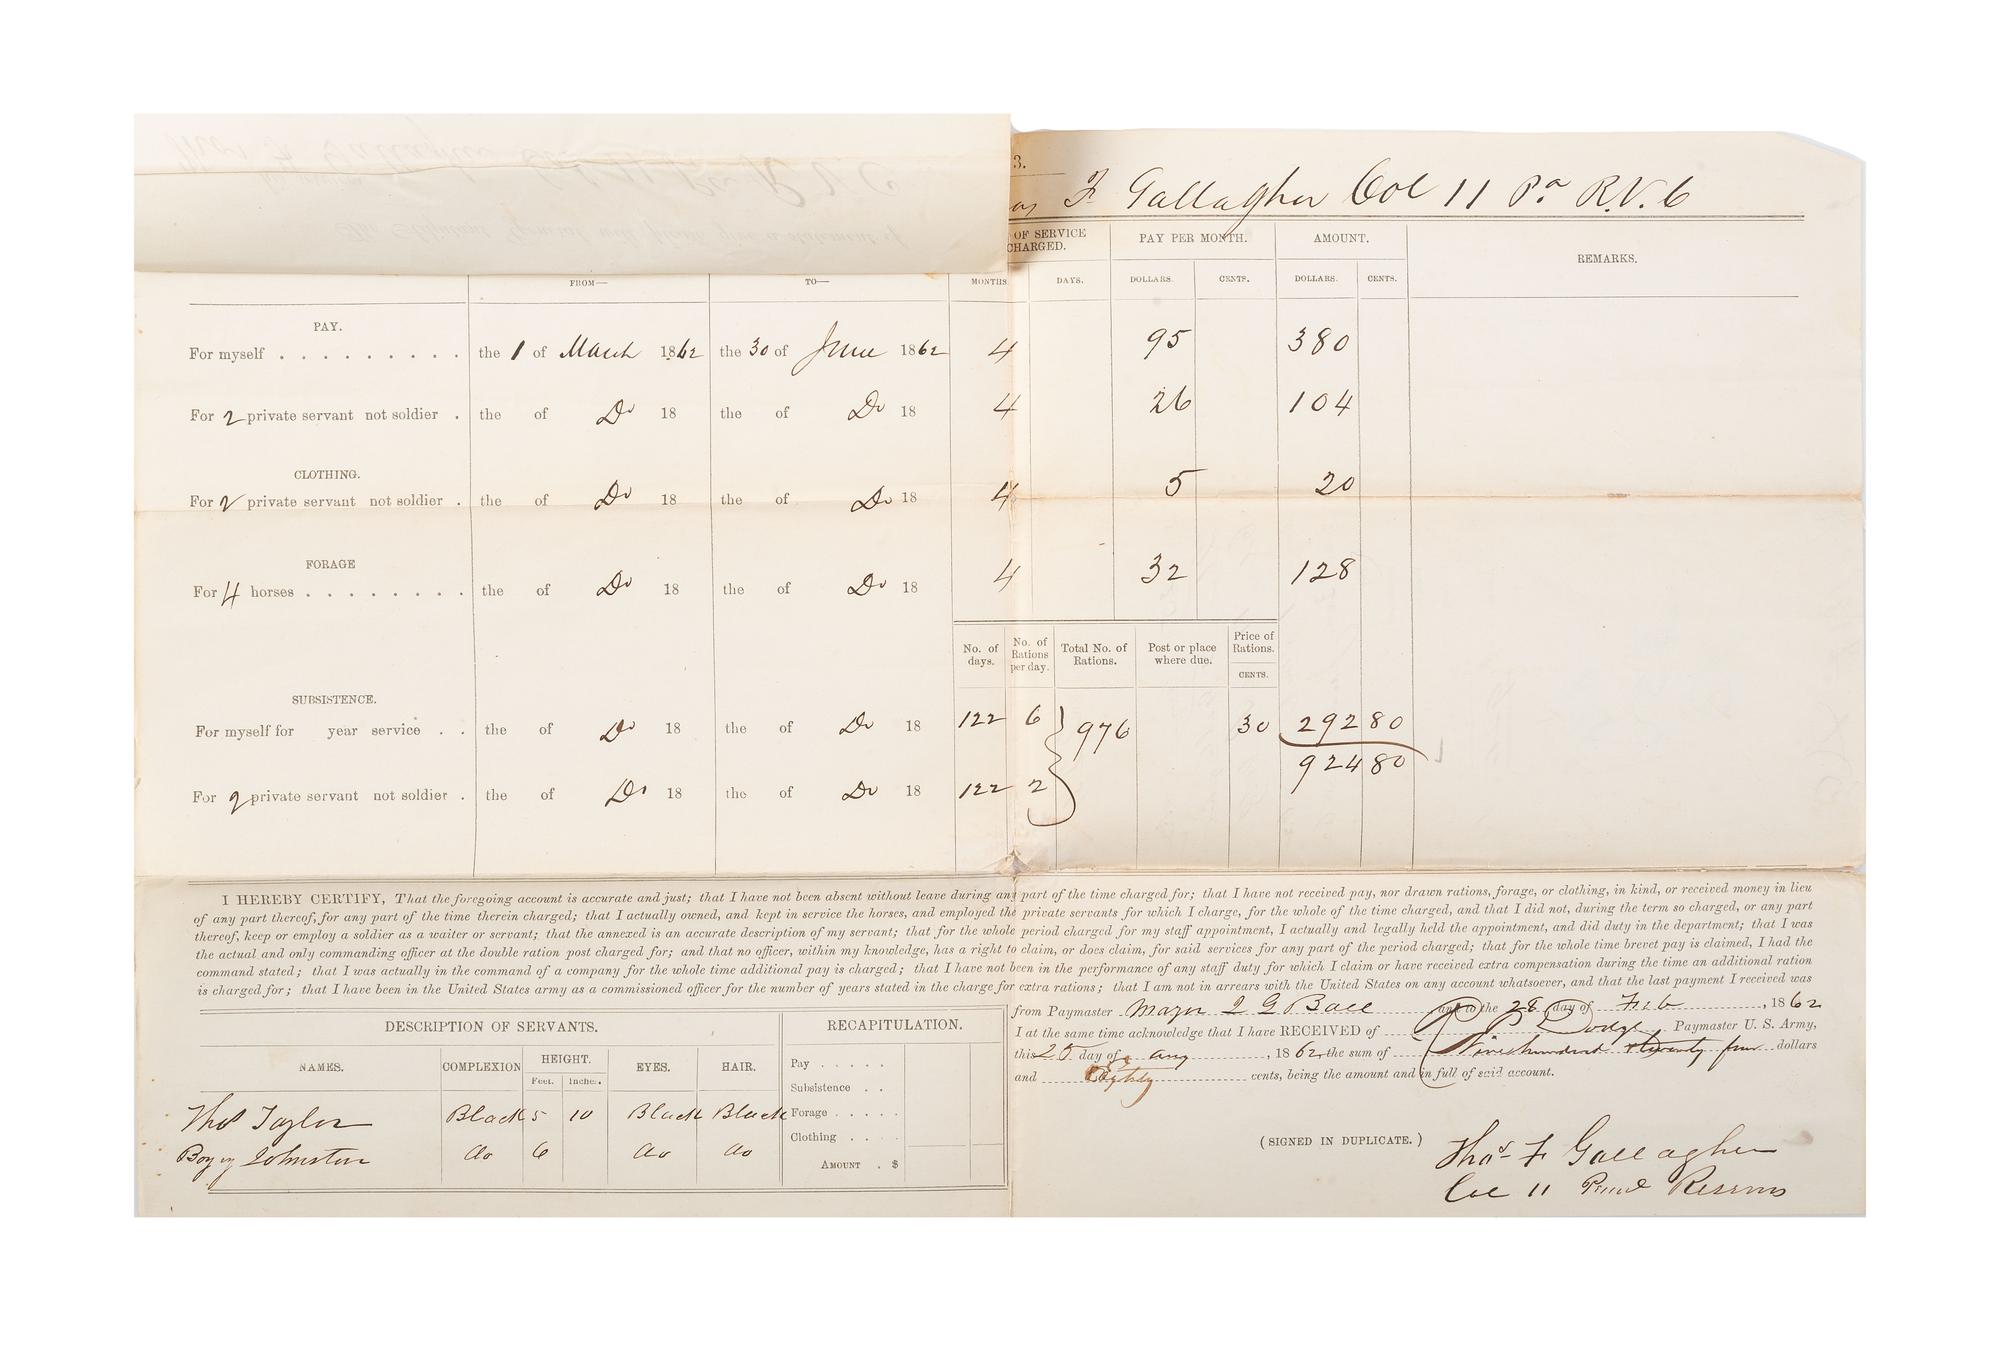 3.
F Gallagher Col 11 Pa R.V.C
OF SERVICE CHARGED. PAY PER MONTH. AMOUNT. REMARKS.
FROM— TO— MONTHS. DAYS. DOLLARS. CENTS. DOLLARS. CENTS.
PAY.
For myself . . . . . . . . . the 1 of March 1862 the 30 of June 1862 4 95 380
For 2 private servant not soldier . the of Do 18 the of Do 18 4 26 104
CLOTHING.
For 2 private servant not soldier . the of Do 18 the of Do 18 4 5 20
FORAGE
For 4 horses . . . . . . . . the of Do 18 the of Do 18 4 32 128
No. of days. No. of Rations per day. Total No. of Rations. Post or place where due. Price of Rations.
CENTS.
SUBSISTENCE.
For myself for year service . . the of Do 18 the of Do 18 122 6 976 30 292 80
924 80
For 2 private servant not soldier . the of Do 18 the of Do 18 122 2
I HEREBY CERTIFY, That the foregoing account is accurate and just; that I have not been absent without leave during any part of the time charged for; that I have not received pay, nor drawn rations, forage, or clothing, in kind, or received money in lieu
of any part thereof, for any part of the time therein charged; that I actually owned, and kept in service the horses, and employed the private servants for which I charge, for the whole of the time charged, and that I did not, during the term so charged, or any part
thereof, keep or employ a soldier as a waiter or servant; that the annexed is an accurate description of my servant; that for the whole period charged for my staff appointment, I actually and legally held the appointment, and did duty in the department; that I was
the actual and only commanding officer at the double ration post charged for; and that no officer, within my knowledge, has a right to claim, or does claim, for said services for any part of the period charged; that for the whole time brevet pay is claimed, I had the
command stated; that I was actually in the command of a company for the whole time additional pay is charged; that I have not been in the performance of any staff duty for which I claim or have received extra compensation during the time an additional ration
is charged for; that I have been in the United States army as a commissioned officer for the number of years stated in the charge for extra rations; that I am not in arrears with the United States on any account whatsoever, and that the last payment I received was
from Paymaster Major I G Ball and to the 28 day of Feb, 1862
I at the same time acknowledge that I have RECEIVED of Dodge Paymaster U. S. Army,
this 25 day of Aug, 1862, the sum of Nine hundred & twenty four dollars
and Eighty cents, being the amount and in full of said account.
DESCRIPTION OF SERVANTS.
NAMES. COMPLEXION HEIGHT. EYES. HAIR.
Feet. Inches.
Thos Taylor Black 5 10 Black Black
Johnston do 6 do do
RECAPITULATION.
Pay . . . . .
Subsistence . .
Forage . . . . .
Clothing . . . .
AMOUNT . $
(SIGNED IN DUPLICATE.) Thos F Gallagher
Col 11 Penna Reserves